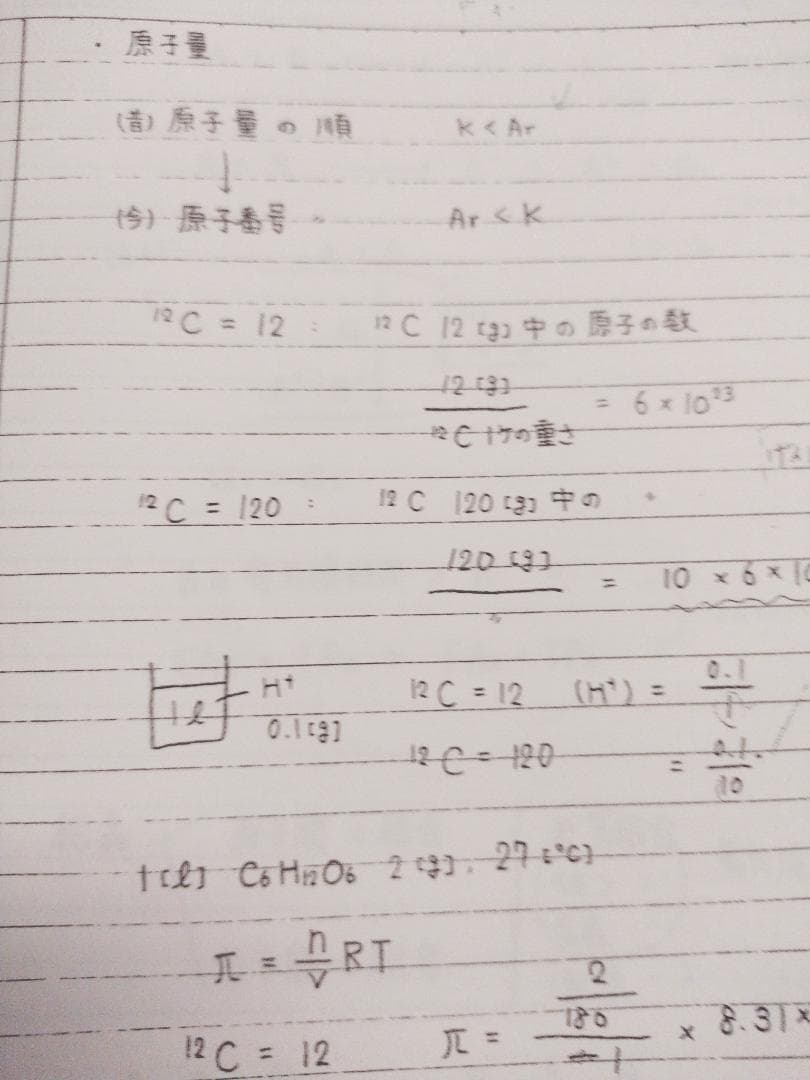 ・原子量
(昔) 原子量の順 K < Ar
↓
(今) 原子番号 〃 Ar < K
¹²C = 12 : ¹²C 12[g]中の原子の数
12[g] / ¹²C 1ケの重さ = 6 × 10²³
¹²C = 120 : ¹²C 120[g]中の 〃
120[g] / 〃 = 10 × 6 × 10
1ℓ H⁺ 0.1[g]
¹²C = 12 (H⁺) = 0.1 / 1
¹²C = 120 = 0.1 / 10
1[ℓ] C₆H₁₂O₆ 2[g]. 27[℃]
π = n/V RT
¹²C = 12 π = 2/180 / 1 × 8.31 ×